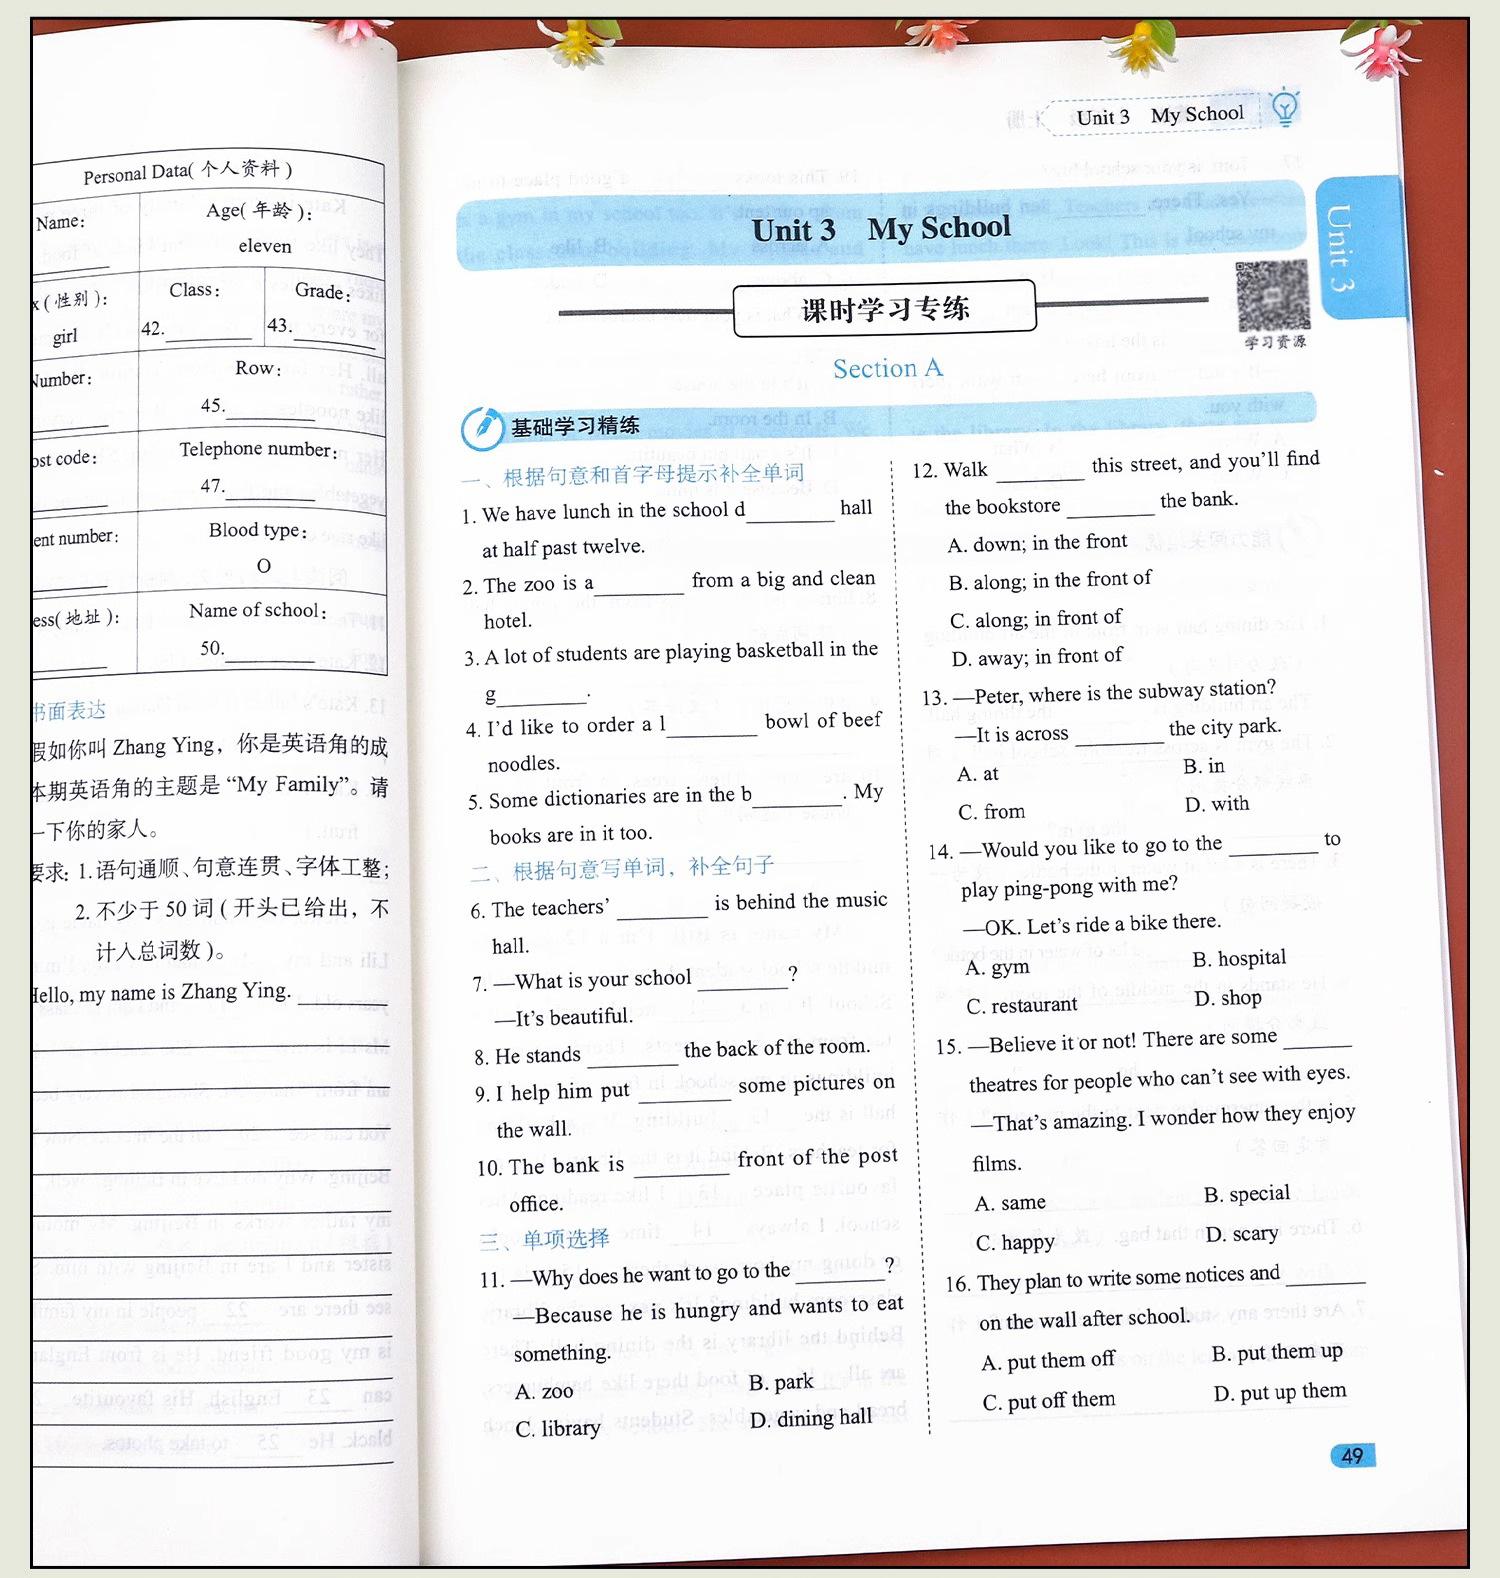 Personal Data(个人资料)
Name:
Age(年龄):
eleven
(性别):
girl
Class:
42.________
Grade:
43.________
Number:
Row:
45.________
code:
Telephone number:
47.________
number:
Blood type:
O
(地址):
Name of school:
50.________
书面表达
假如你叫 Zhang Ying，你是英语角的成
本期英语角的主题是 “My Family”。请
一下你的家人。
要求: 1.语句通顺、句意连贯、字体工整;
2. 不少于 50 词(开头已给出，不
计入总词数)。
Hello, my name is Zhang Ying.
Unit 3 My School
Unit 3 My School
Unit 3
课时学习专练
学习资源
Section A
基础学习精练
一、根据句意和首字母提示补全单词
1. We have lunch in the school d________ hall
at half past twelve.
2. The zoo is a________ from a big and clean
hotel.
3. A lot of students are playing basketball in the
g________.
4. I’d like to order a l________ bowl of beef
noodles.
5. Some dictionaries are in the b________. My
books are in it too.
二、根据句意写单词，补全句子
6. The teachers’ ________ is behind the music
hall.
7. —What is your school ________?
—It’s beautiful.
8. He stands ________ the back of the room.
9. I help him put ________ some pictures on
the wall.
10. The bank is ________ front of the post
office.
三、单项选择
11. —Why does he want to go to the ________?
—Because he is hungry and wants to eat
something.
A. zoo B. park
C. library D. dining hall
12. Walk ________ this street, and you’ll find
the bookstore ________ the bank.
A. down; in the front
B. along; in the front of
C. along; in front of
D. away; in front of
13. —Peter, where is the subway station?
—It is across ________ the city park.
A. at B. in
C. from D. with
14. —Would you like to go to the ________ to
play ping-pong with me?
—OK. Let’s ride a bike there.
A. gym B. hospital
C. restaurant D. shop
15. —Believe it or not! There are some ________
theatres for people who can’t see with eyes.
—That’s amazing. I wonder how they enjoy
films.
A. same B. special
C. happy D. scary
16. They plan to write some notices and ________
on the wall after school.
A. put them off B. put them up
C. put off them D. put up them
49